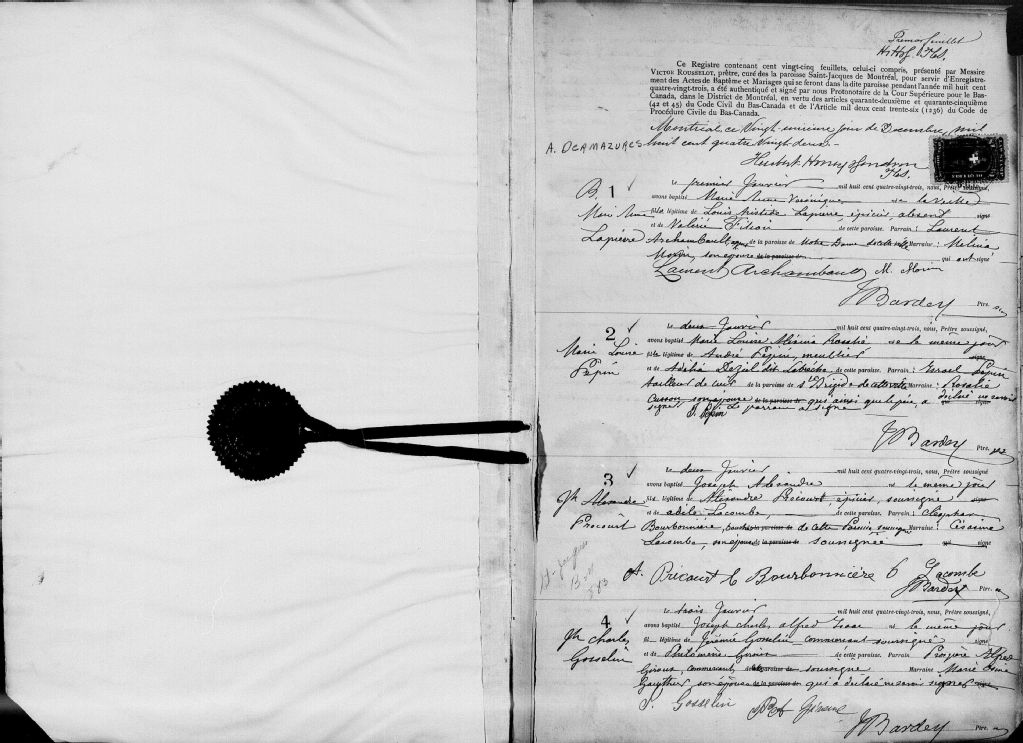 Premier feuillet
H. Hof. Hd.
Ce Registre contenant cent vingt-cinq feuillets, celui-ci compris, présenté par Messire
VICTOR ROUSSELOT, prêtre, curé des la paroisse Saint-Jacques de Montréal, pour servir d'Enregistre-
ment des Actes de Baptême et Mariages qui se feront dans la dite paroisse pendant l'année mil huit cent
quatre-vingt-trois, a été authentiqué et signé par nous Protonotaire de la Cour Supérieure pour le Bas-
Canada, dans le District de Montréal, en vertu des articles quarante-deuxième et quarante-cinquième
(42 et 45) du Code Civil du Bas-Canada et de l'Article mil deux cent trente-six (1236) du Code de
Procédure Civile du Bas-Canada.
Montréal, ce Vingt jour de Décembre, mil
huit cent quatre Vingt deux.-
A. DEAMAZURES
Hubert Honey
B. 1
Le premier Janvier mil huit cent quatre-vingt-trois, nous, Prêtre soussigné,
avons baptisé Marie Anne Véronique née la veille
Marie Anne
fille légitime de Louis Aristide Lapierre, épicier, absent signé
et de Valérie Filion de cette paroisse. Parrain : Laurent
Lapierre
Archambault de la paroisse de Notre Dame de cette ville Marraine : Melina
Morin, son épouse de la paroisse de qui ont signé
Laurent Archambault M. Morin
J Bardey Ptre.
2
Le deux Janvier mil huit cent quatre-vingt-trois, nous, Prêtre soussigné,
avons baptisé Marie Louise Rosalie née le même jour
Marie Louise
fille légitime de André Pépin, meublier signé
Pépin
et de Adélia Deziel dit Labrèche de cette paroisse. Parrain : Israel Pépin
tailleur de cuir de la paroisse de Ste Brigide de cette ville Marraine : Rosalie
son épouse de la paroisse de qui ainsi que le père, a déclaré ne savoir
signer. Le parrain a signé
I. Pépin
J Bardey Ptre.
3
Le deux Janvier mil huit cent quatre-vingt-trois, nous, Prêtre soussigné
avons baptisé Joseph Alexandre né le même jour
Jh Alexandre
fils légitime de Alexandre Précourt, épicier, soussigné signé
Précourt
et de Adèle Lacombe, de cette paroisse. Parrain : Cléophas
Bourbonnière, de cette Paroisse soussigné Marraine : Césarine
Lacombe, son épouse de la paroisse de soussignée qui signé
A. Précourt C Bourbonnière C Lacombe
J Bardey Ptre.
4
Le trois Janvier mil huit cent quatre-vingt-trois, nous, Prêtre soussigné,
avons baptisé Joseph Charles Alfred Isaac né le même jour
Jh Charles
fils légitime de Jérémie Gosselin, commerçant soussigné signé
Gosselin
et de Philomène Giroux de cette paroisse. Parrain Prospère Alfred
Giroux, commerçant, de la paroisse de soussigné Marraine Marie
Gauthier son épouse de la paroisse de qui a déclaré ne savoir signer signé
J. Gosselin
J Bardey Ptre.